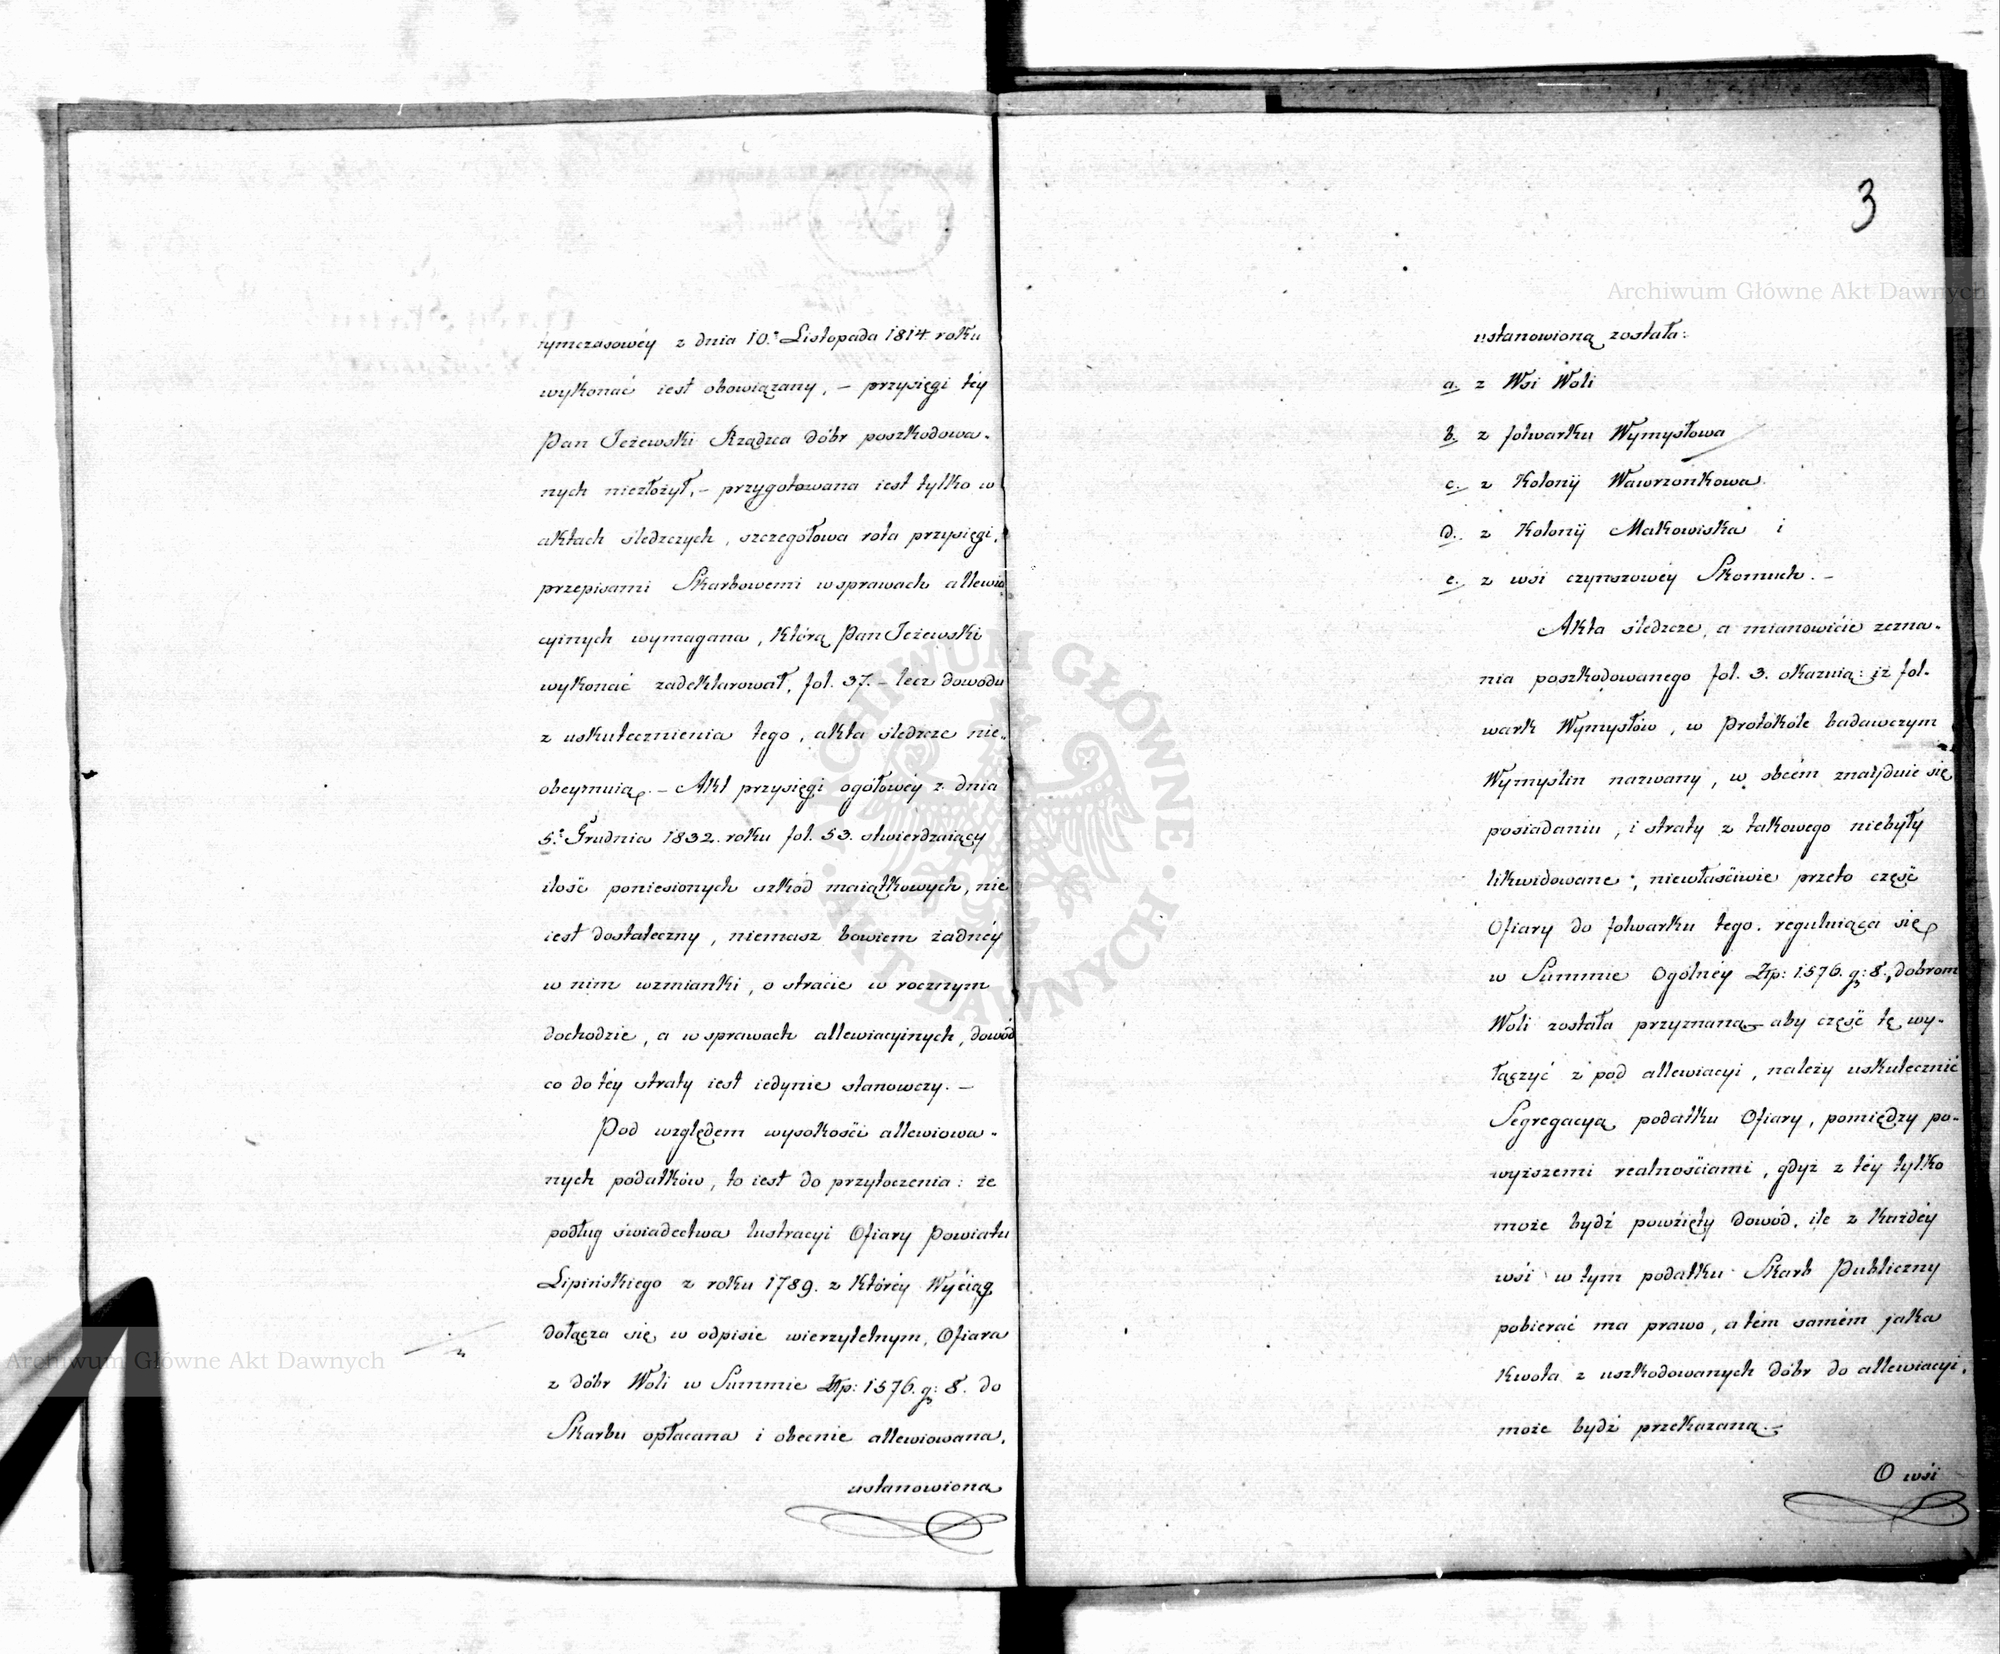 tymczasowéy z dnia 10.º Listopada 1814 roku
wykonać iest obowiązany, – przysięgi téy
Pan Jeżewski Rządzca dóbr poszkodowa-
nych niezłożył, – przygotowana iest tylko w
aktach śledzczych, szczegółowa rota przysięgi,
przepisami Skarbowemi w sprawach allewia
cyinych wymagana, którą Pan Jeżewski
wykonać zadeklarował, fol. 37. – lecz dowodu
z uskutecznienia tego, akta śledzcze nie-
obeymuią. – Akt przysięgi ogółowéy z dnia
5.º Grudnia 1832. roku fol. 53. stwierdzaiący
ilość poniesionych szkód maiątkowych, nie
iest dostateczny, niemasz bowiem żadnéy
w nim wzmianki, o stracie w rocznym
dochodzie, a w sprawach allewiacyinych, dowód
co do téy straty iest iedynie stanowczy. –
Pod względem wysokości allewiowa-
nych podatków, to iest do przytoczenia: że
podług świadectwa lustracyi Ofiary Powiatu
Lipińskiego z roku 1789. z któréy Wyciąg
dołącza się w odpisie wierzytelnym, Ofiara
z dóbr Woli w Summie Złp: 1576. g: 8. do
Skarbu opłacana i obecnie allewiowana,
ustanowiona
3
ustanowioną została:
a. z Wsi Woli
b. z folwarku Wymysłowa
c. z Kolonij Wawrzonkowa
d. z Kolonij Makowiska i
e. z wsi czynszowéy Skomuch. –
Akta śledzcze, a mianowicie zezna-
nia poszkodowanego fol. 3. okazuią: iż fol-
wark Wymysłów, w Protokóle badawczym
Wymyślin nazwany, w obcém znayduie się
posiadaniu, i straty z takowego niebyły
likwidowane; niewłaściwie przeto część
Ofiary do folwarku tego regulniąca się
w Summie Ogólnéy Złp: 1576. g: 8., dobrom
Woli została przyznaną – aby część tę wy-
łączyć z pod allewiacyi, należy uskutecznić
Segregacyą podatku Ofiary, pomiędzy po-
wyższemi realnościami, gdyż z téy tylko
może bydź powzięty dowód, ile z każdéy
wsi w tym podatku Skarb Publiczny
pobierać ma prawo, a tém samém jaka
kwota z uszkodowanych dóbr do allewiacyi,
może bydź przekazaną. –
O wsi
Archiwum Główne Akt Dawnych
Archiwum Główne Akt Dawnych
ARCHIWUM GŁÓWNE AKT DAWNYCH